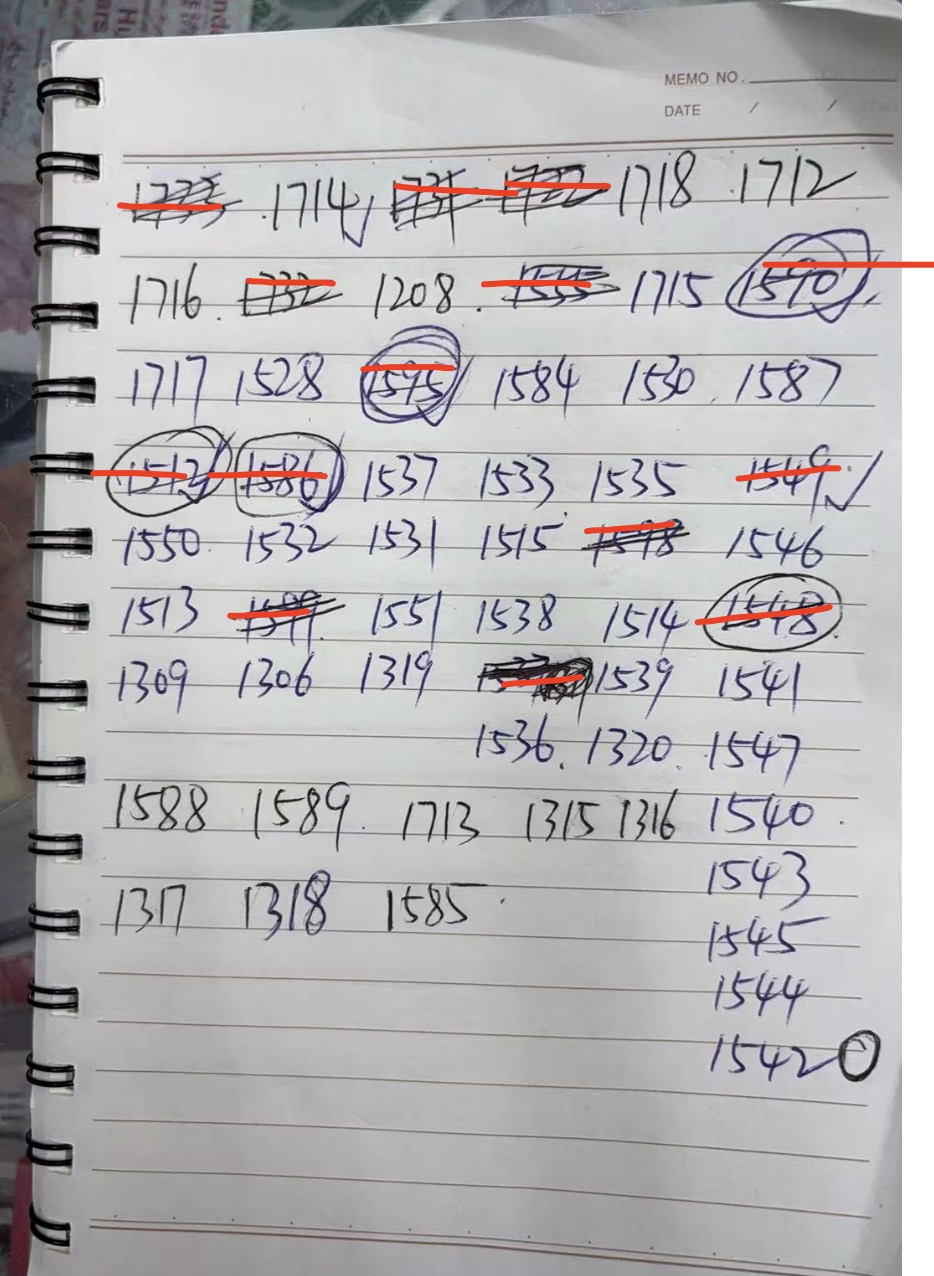 MEMO NO.
DATE / /
1714 1718 1712
1716. 1732 1208. 1715 1590
1717 1528 1595 1584 1530. 1587
1512 1586 1537 1533 1535 1549
1550. 1532 1531 1515 1546
1513 1551 1538 1514 1548
1309 1306 1319 1539 1541
1536. 1320. 1547
1588 1589. 1713 1315 1316 1540.
1543
1317 1318 1585
1545
1544
1542